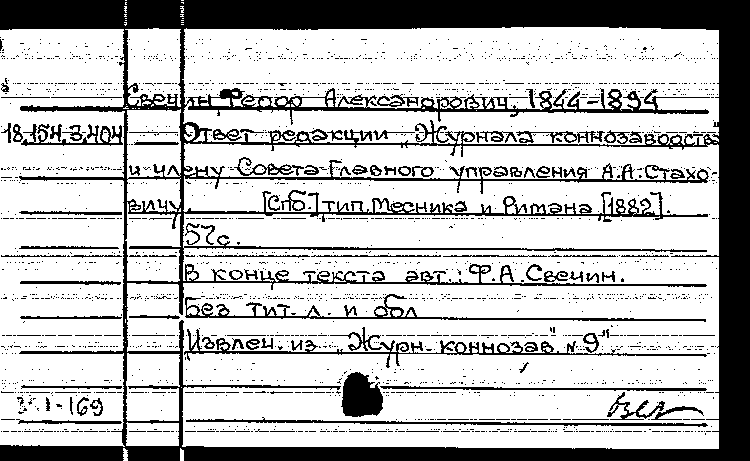 Свечин, Федор Александрович, 1844-1894
18.154.3.404 Ответ редакции „Журнала коннозаводства"
и члену Совета Главного управления А.А.Стахо-
вичу. [Спб.], тип. Месника и Римана, [1882].
52с.
В конце текста авт.: Ф.А.Свечин.
Без тит. л. и обл
Извлеч. из „Журн. коннозав." № 9"
-169